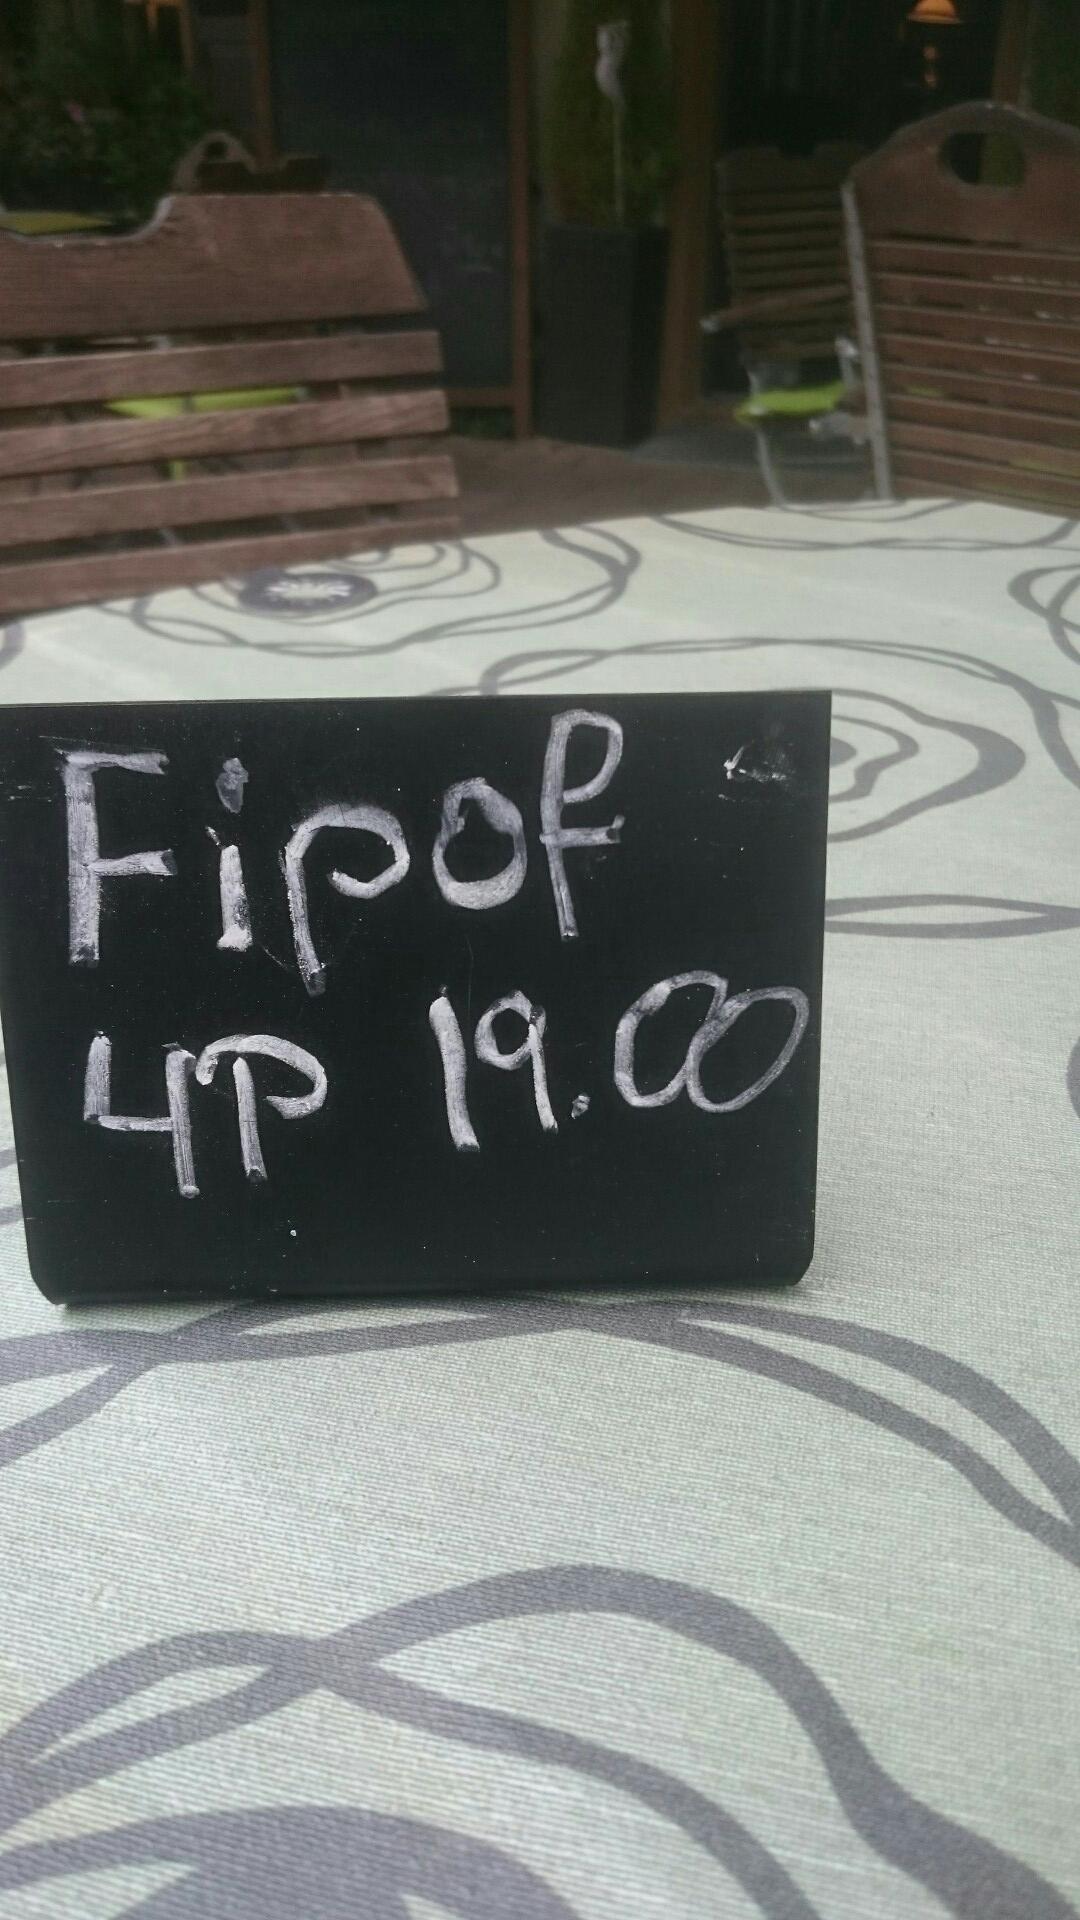 Fipof
4P 19.00